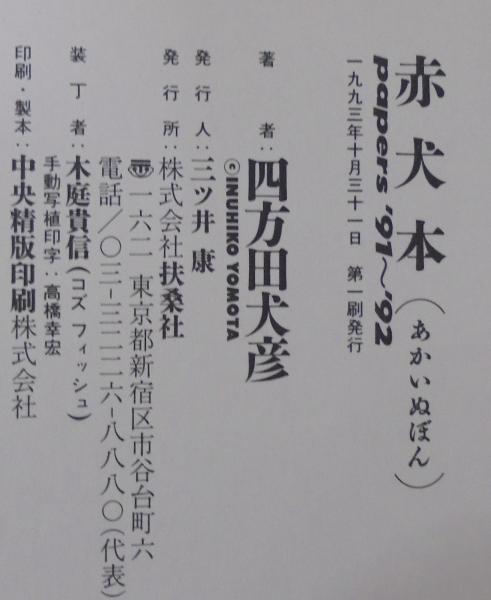 赤犬本(あかいぬぼん)
papers '91〜'92
一九九三年十月三十一日 第一刷発行
著者:四方田犬彦
©INUHIKO YOMOTA
発行人:三ツ井 康
発行所:株式会社扶桑社
〒一六二 東京都新宿区市谷台町六
電話/〇三-三二二六-八八八〇(代表)
装丁者:木庭貴信(コズフィッシュ)
手動写植印字:高橋幸宏
印刷・製本:中央精版印刷株式会社